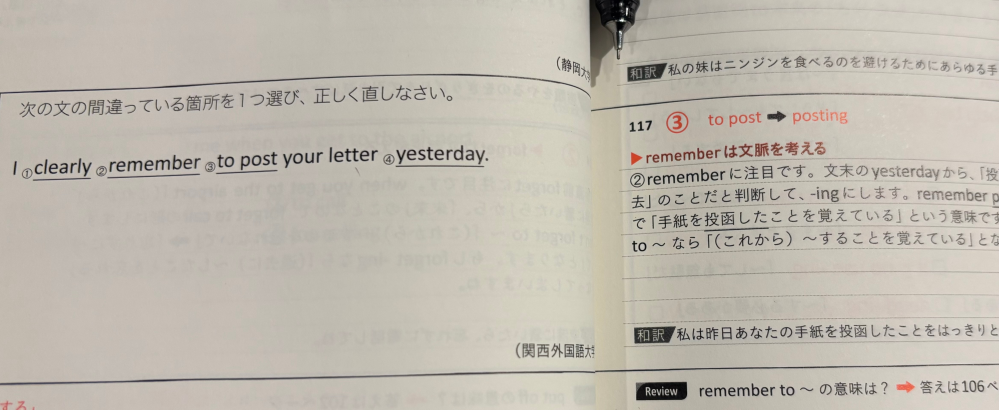 (静岡大
次の文の間違っている箇所を1つ選び、正しく直しなさい。
I ①clearly ②remember ③to post your letter ④yesterday.
(関西外国語大
する」
和訳 私の妹はニンジンを食べるのを避けるためにあらゆる手
117 ③ to post ➡ posting
▶rememberは文脈を考える
②rememberに注目です。文末のyesterdayから、「投
去」のことだと判断して、-ingにします。remember p
で「手紙を投函したことを覚えている」という意味です
to ～ なら「(これから) ～することを覚えている」とな
和訳 私は昨日あなたの手紙を投函したことをはっきりと
Review remember to ～ の意味は? ➡ 答えは106ペ